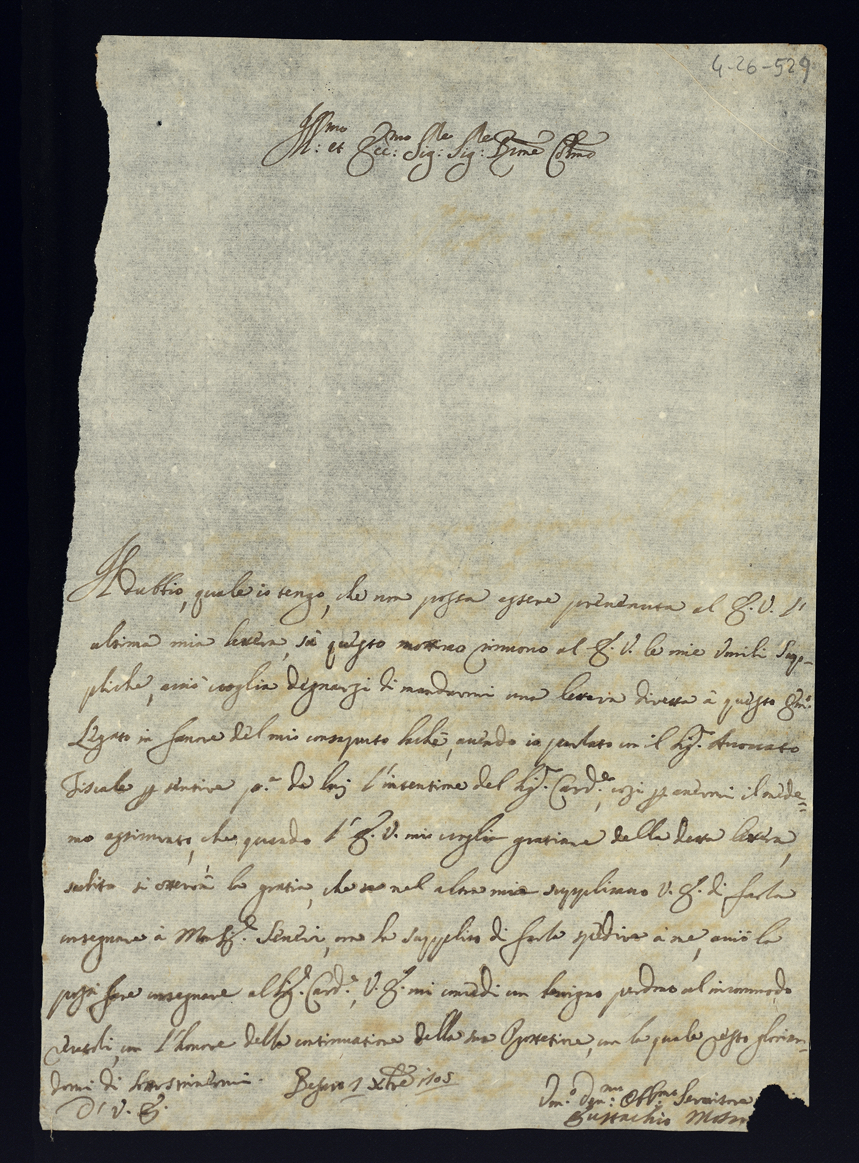 4-26-529
Ill:mo et Ecc:mo Sig:re Sig:re Prone Col:mo
Il dubbio, quale io tengo, che non possa essere pervenuta al E. V. l'
altima mia lettera, su questo motivo rinnovo al E. V. le mie Umili Sup-
pliche, acciò voglia degnarsi di mandarmi una lettera diretta à questo Em:o
Legato in favore del mio consaputo havendo io parlato con il Sig.r Avvocato
Fiscale p sentire p.a da luj l'intentione del Sig.r Card.le, per avermi il mede-
mo che quando l'E. V. mi voglia gratiare della detta lettera,
subito si otterrà la gratia, che se nel altra mia supplicavo V. E. di farla
consegnare à Mon Sig.r ora la supplico di farla spedire à me, acciò la
possi fare consegnare al Sig.r Card.le, V. E. mi concedi un benigno perdono al incommodo
con l'honore della continuatione della sua Protettione, con la quale resto glorian-
domi di sottoscrivermi. Pesaro 1 Xbre 1705
D' V. E.
Um:o Dev:mo Obb:mo Servitore
Eustachio